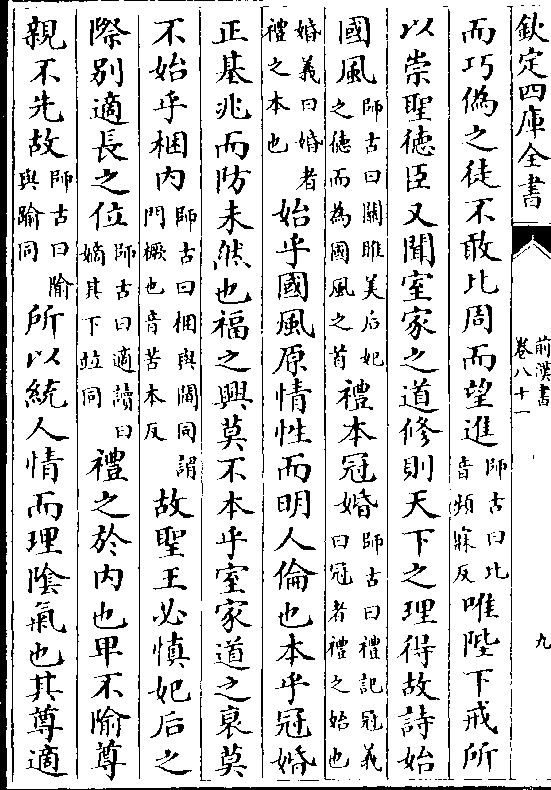 欽定四庫全書
前漢書
卷八十一
九
而巧偽之徒不敢比周而望進師古曰比音頻寐反唯陛下戒所
以崇聖德臣又聞室家之道修則天下之理得故詩始
國風師古曰關雎美后妃之德而為國風之首禮本冠婚師古曰禮記冠義曰冠者禮之始也
婚義曰婚者禮之本也始乎國風原情性而明人倫也本乎冠婚
正基兆而防未然也福之興莫不本乎室家道之衰莫
不始乎梱内師古曰梱與閫同謂門橛也音苦本反故聖王必慎妃后之
際别適長之位師古曰適讀曰嫡其下竝同禮之於内也卑不隃尊
親不先故師古曰隃與踰同所以統人情而理隂氣也其尊適